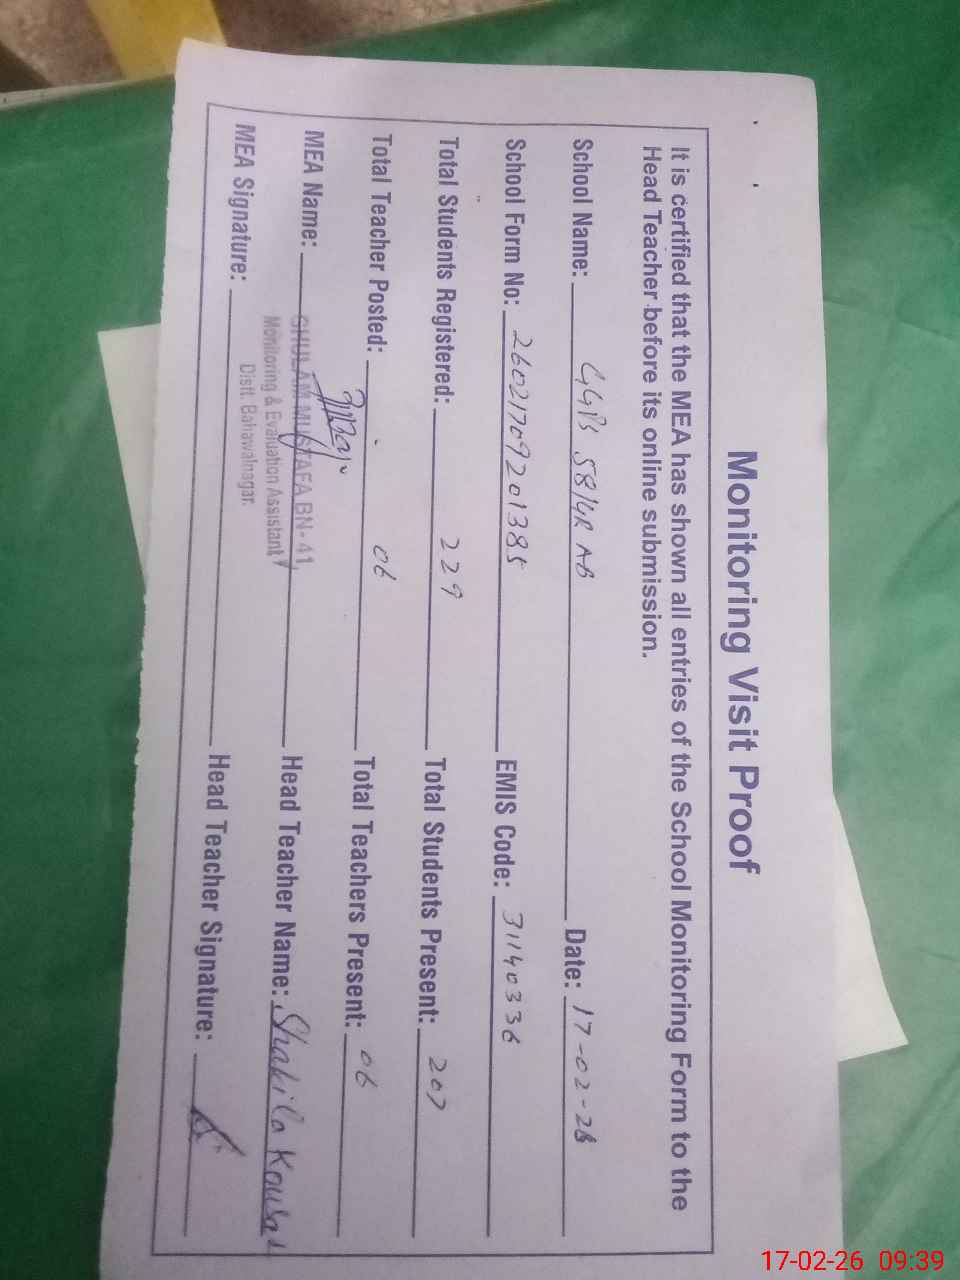 Monitoring Visit Proof
It is certified that the MEA has shown all entries of the School Monitoring Form to the
Head Teacher before its online submission.
School Name: GGPS 58/4R AB Date: 17-02-26
School Form No: 26021709201385 EMIS Code: 31140336
Total Students Registered: 229 Total Students Present: 207
Total Teacher Posted: 06 Total Teachers Present: 06
MEA Name: GHULAM MUSTAFA BN-41 Head Teacher Name: Shakila Kousar
Monitoring & Evaluation Assistant
Distt. Bahawalnagar.
MEA Signature: Head Teacher Signature:
17-02-26 09:39